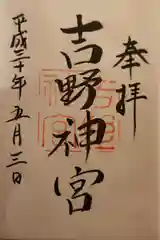 奉拝
吉野神宮
平成三十年五月三日